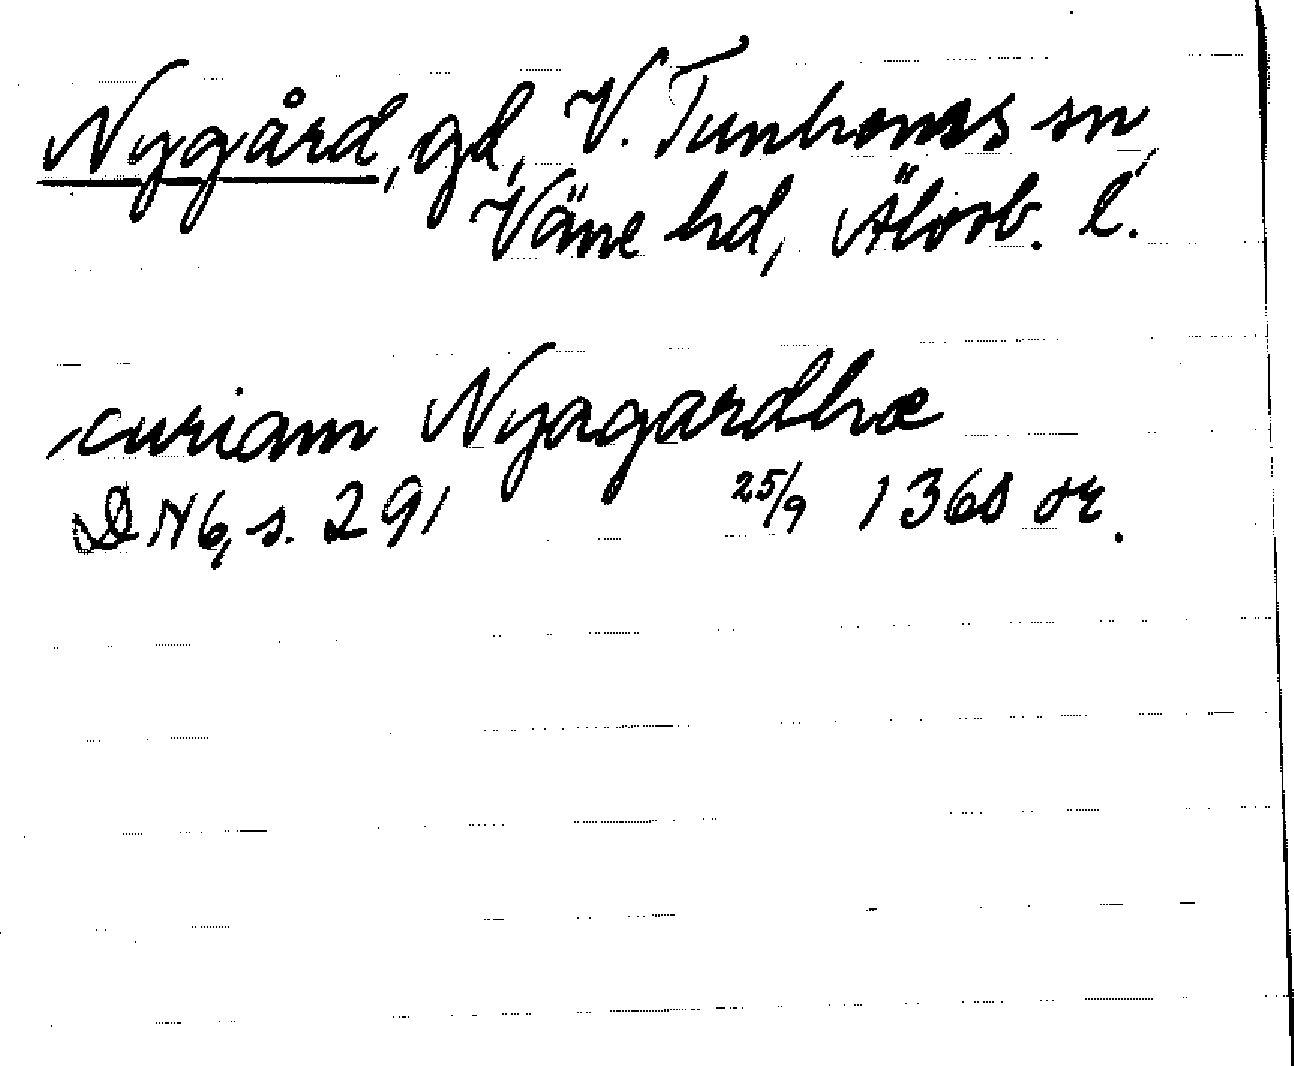 Nygård, gd, V. Tunhems sn,
Väne hd, Älvsb. l.
curiam Nyagardhæ
DN 6, s. 291 25/9 1360 or.